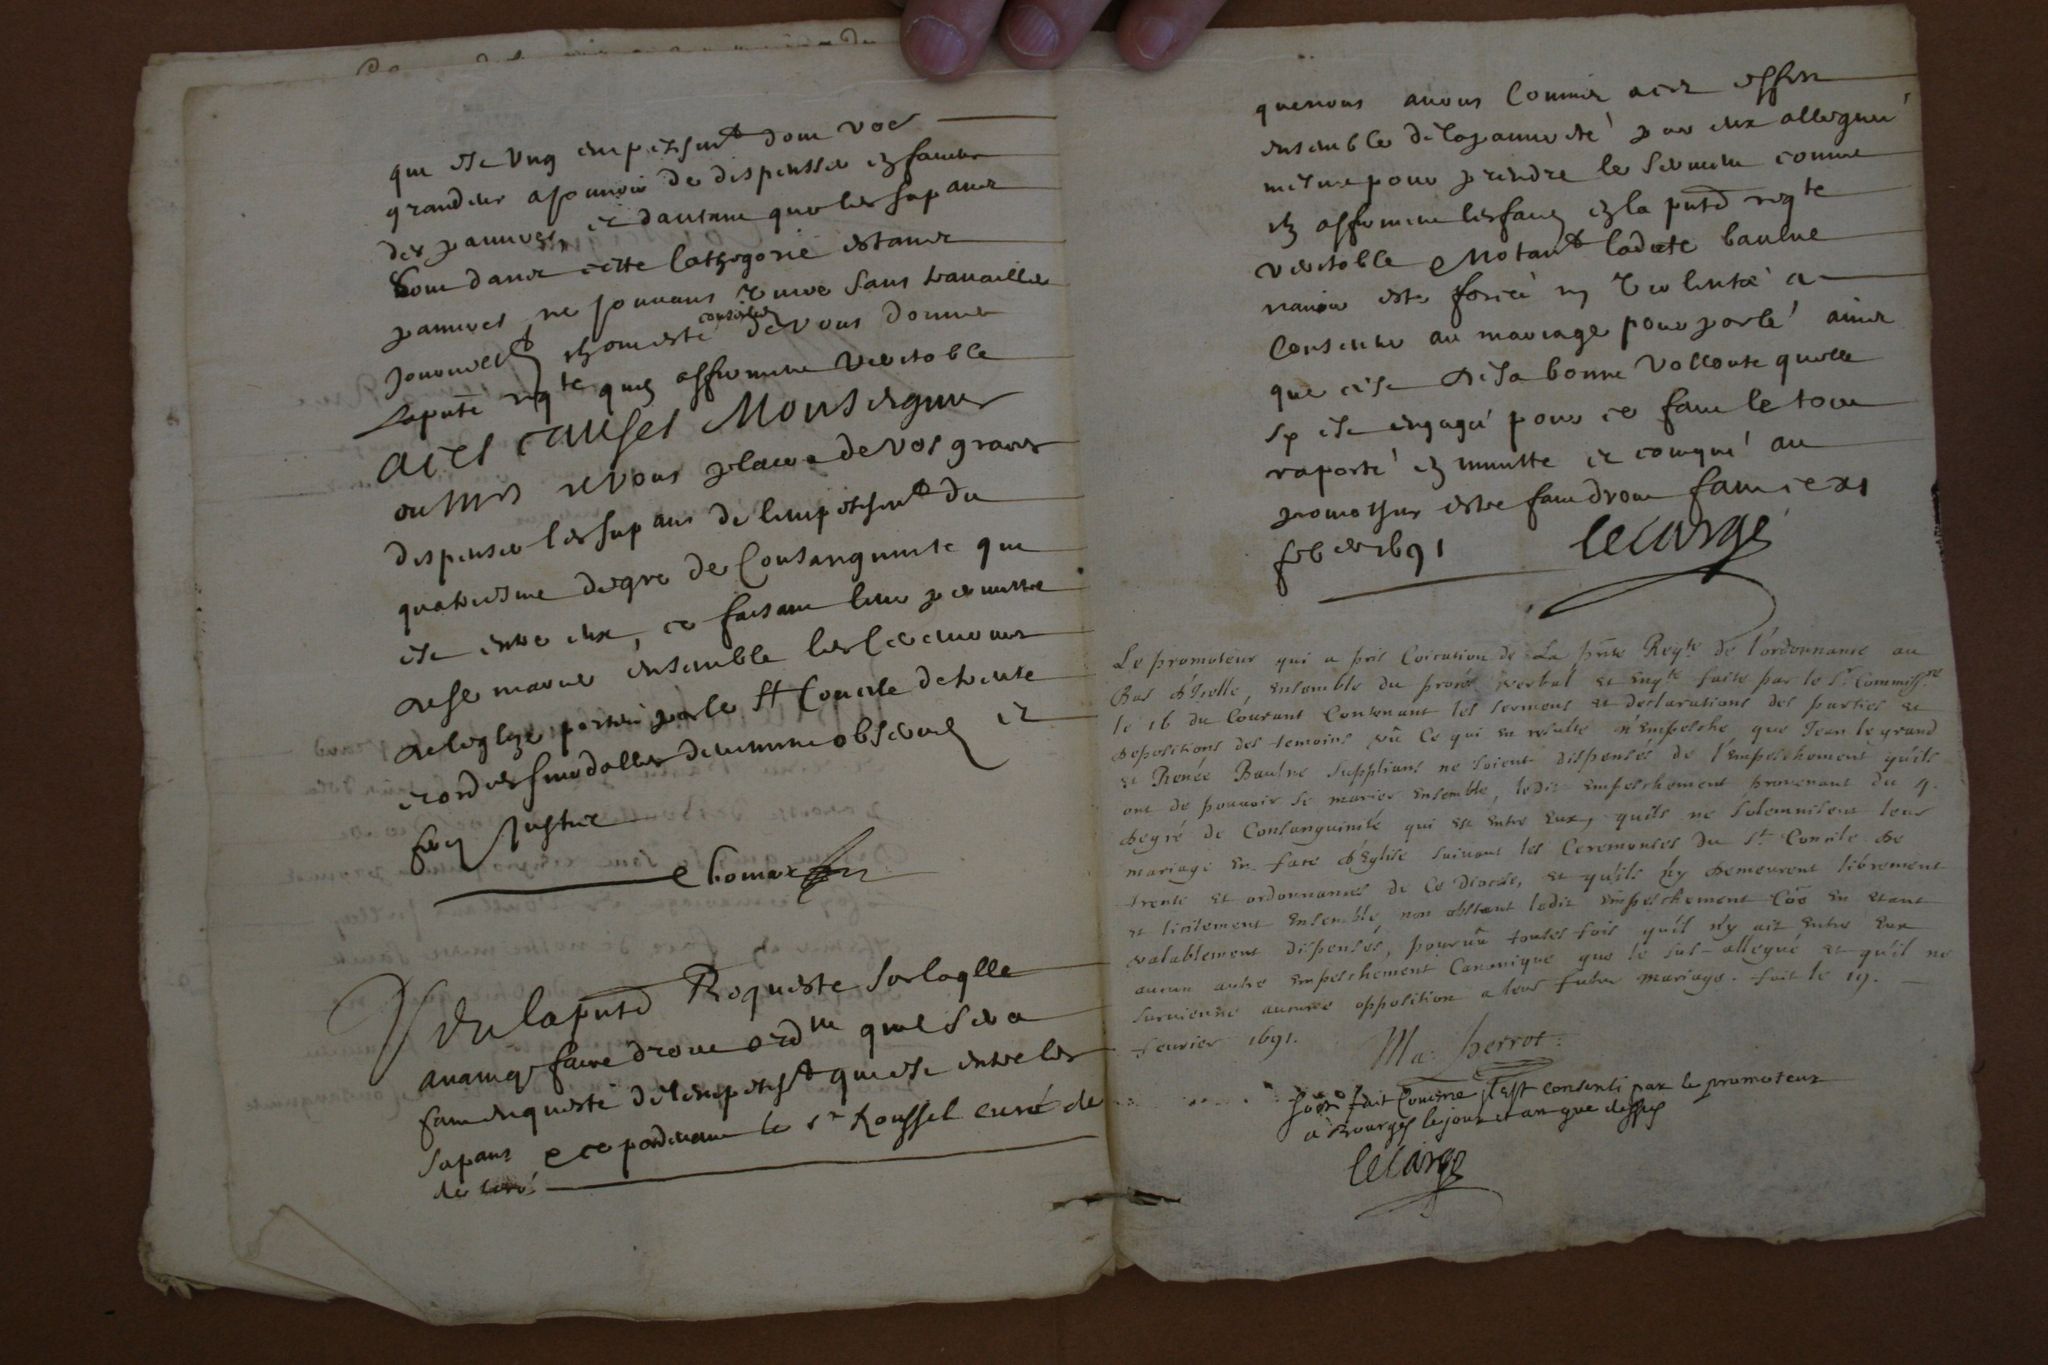 que est ung empeschemt dont vre
grandeur a pouvoir de dispensser en faveur
des pauvres, et dautant que les supans
sont dans cette cathegorie estants
pauvres ne pouvans vivre sans travailler
journellemt
conseillé de vous donner
la pnte reqte quilz afferment veritable
A ces causes Monseigneur
il vous plaira de vos graces
dispenser les supans de lempeschemt du
quatriesme degre de Consanguinité qui
est entre eux, ce faisant leur permettre
de se marier ensemble les ceremonies
de leglize portées par le St Concile de trente
et ordces sinodalles deuement observées et
fer Justice
Thomas
Veu la pnte Requeste sur laqlle
avant faire droit ordns quil sera
fait enqueste de lempeschmt qui est entre les
supans et ce pardevant le sr Roussel curé de
que nous avons commis a cet effet
ensemble de la pauvreté par eux alleguée
mesme pour prendre le serment comme
ilz afferment les faits en la pnte reqte
veritable et Notant ladite baulne
navoir esté forcée ny violentée a
Consentir au mariage pour parlé ains
que cest de sa bonne vollonte quelle
sy est engagée pour ce fait le tout
raporté en minutte et comqué au
promotheur estre fait droit fait ce xi
feber 1691 Lelarge
Le promoteur qui a pris Coication de La pnte Reqte de l'ordonnance au
Bas d'Icelle, Ensemble du procés verbal et Enqte faite par le Sr. Commissre
le 16 du Courant Contenant les sermens et declarations des parties et
depositions des temoins vû Ce qui en resulte n'Empesche, que Jean le grand
et Renée Baulne suppliants ne soient dispensés de l'Empeschement qu'ils
ont de pouvoir se marier Ensemble, ledit Empeschement provenant du 4.
degré de Consanguinité qui est Entre Eux, qu'ils ne solemnisent leur
mariage En face d'Eglise suivant les Ceremonies du St. Concile de
trente et ordonnances de Ce Diocese, et qu'ils n'y demeurent librement
et licitement Ensemble, non obstant ledit Empeschement Côe En étant
valablement dispensés, pourvû toutes fois qu'il n'y ait Entre Eux
aucun autre Empeschement Canonique que le sus-allegué et qu'il ne
survienne aucune opposition a leur futur mariage. fait le 19.
fevrier 1691.
Ma. perrot.
fait Comme il Est consenti par le promoteur
a Bourges le jour et an que dessus
Lelarge